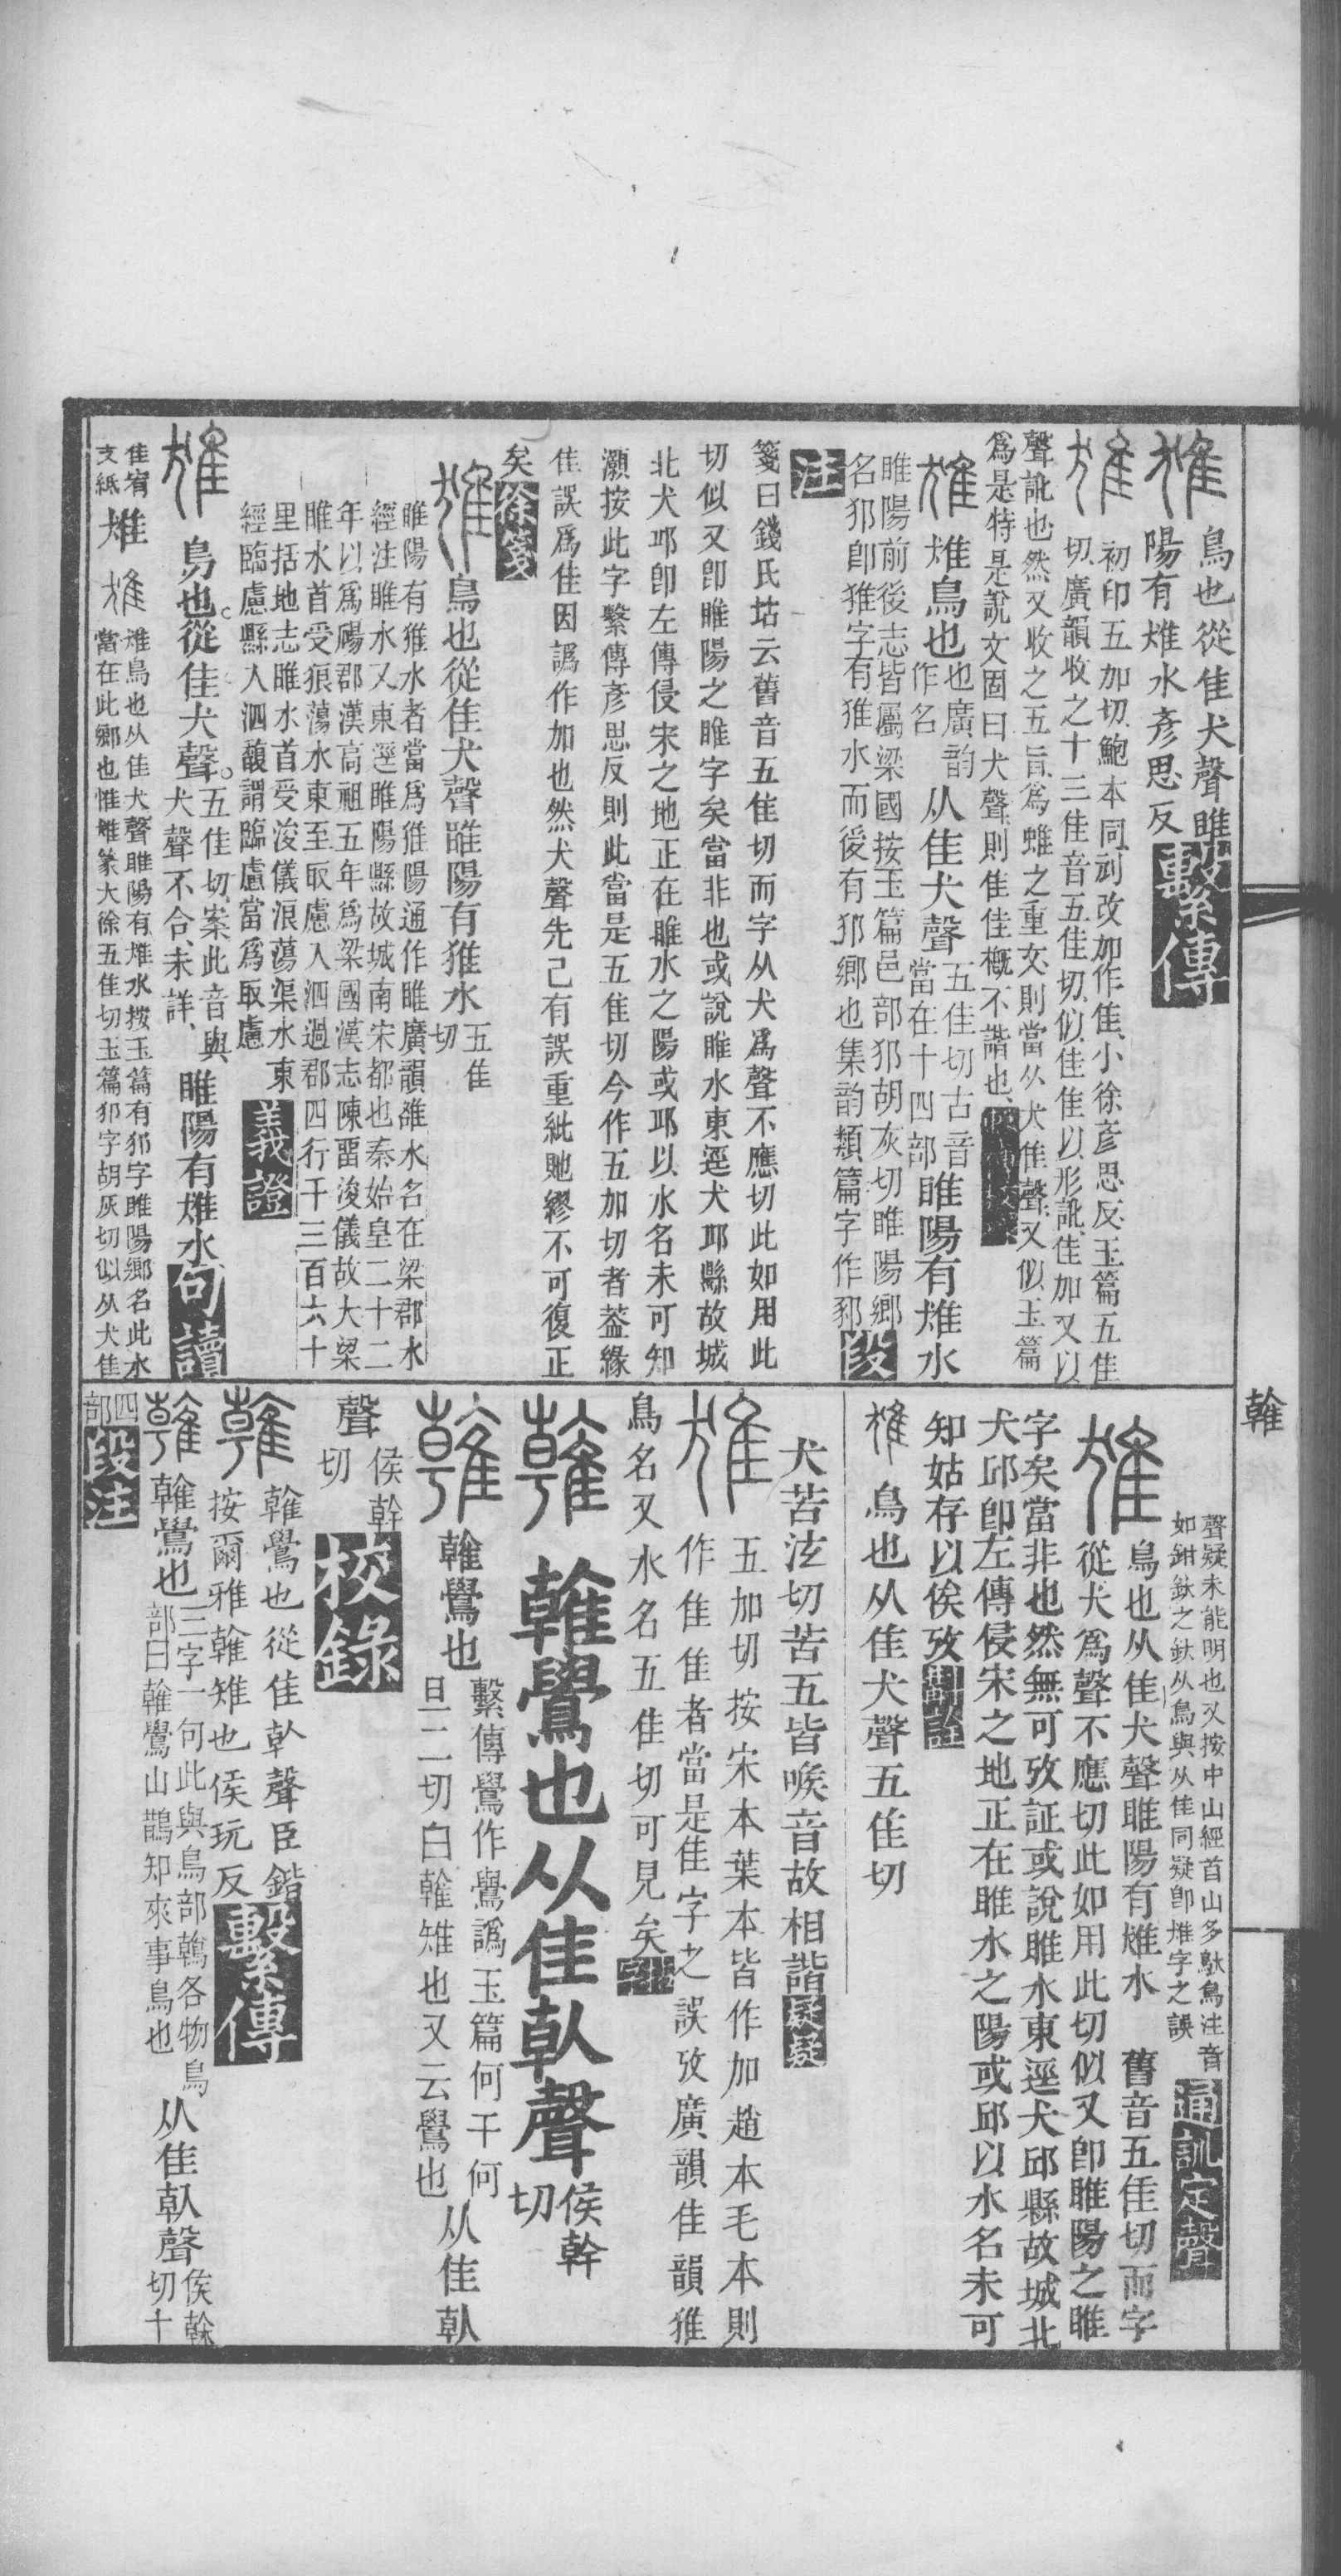 鳥也從隹犬聲睢
陽有䧹水彥思反繫傳
初印五加切鮑本同剜改加作隹小徐彥思反玉篇五隹
切廣韻收之十三佳音五佳切似佳隹以形訛佳加又以
聲訛也然又收之五旨爲蜼之重文則當从犬隹聲又似玉篇
爲是特是說文固曰犬聲則隹佳概不諧也
鳥也
也廣韵
作名
从隹犬聲
五佳切古音
當在十四部
睢陽有水
睢陽前後志皆屬梁國按玉篇邑部𨚍胡灰切睢陽鄉
名𨚍卽字有水而後有𨚍鄉也集韵類篇字作𨛬段
注
箋曰錢氏坫云舊音五隹切而字从犬爲聲不應切此如用此
切似又卽睢陽之睢字矣當非也或說睢水東逕犬邱縣故城
北犬邱卽左傳侵宋之地正在睢水之陽或邱以水名未可知
灝按此字繫傳彥思反則此當是五隹切今作五加切者葢緣
佳誤爲隹因譌作加也然犬聲先已有誤重紕貤繆不可復正
矣徐箋
鳥也從隹犬聲睢陽有水
五隹
切
睢陽有水者當爲陽通作睢廣韻濉水名在梁郡水
經注睢水又東逕睢陽縣故城南宋都也秦始皇二十二
年以爲碭郡漢高祖五年爲梁國漢志陳畱浚儀故大梁
睢水首受狼蕩水東至取慮入泗過郡四行千三百六十
里括地志睢水首受浚儀浪蕩渠水東
經臨慮縣入泗馥謂臨慮當爲取慮義證
鳥也從隹犬聲
五佳切案此音與
犬聲不合未詳
睢陽有水句讀
鳥也从隹犬聲睢陽有水按玉篇有𨚍字睢陽鄉名此水
當在此鄉也惟篆大徐五隹切玉篇𨚍字胡灰切似从犬隹
聲疑未能明也又按中山經首山多䳄鳥注音
如鉗釱之釱从鳥與从隹同疑卽字之誤通訓定聲
鳥也从隹犬聲睢陽有水 舊音五隹切而字
從犬爲聲不應切此如用此切似又卽睢陽之睢
字矣當非也然無可攷証或說睢水東逕犬邱縣故城北
犬邱卽左傳侵宋之地正在睢水之陽或邱以水名未可
知姑存以俟攷斠詮
鳥也从隹犬聲五隹切
犬苦泫切苦五皆喉音故相諧疑疑
五加切按宋本葉本皆作加趙本毛本則
作隹隹者當是佳字之誤攷廣韻佳韻
鳥名又水名五佳切可見矣
雗鷽也从隹倝聲
侯幹
切
雗鷽也
繫傳鷽作鸒譌玉篇何干何
旦二切白雗雉也又云鷽也
从隹倝
聲
侯幹
切
校錄
雗鷽也從隹倝聲臣鍇
按爾雅雗雉也侯玩反繫傳
雗鷽也
三字一句此與鳥部鶾各物鳥
部曰雗鷽山鵲知來事鳥也
从隹倝聲
侯榦
切十
四
部
段注
雗